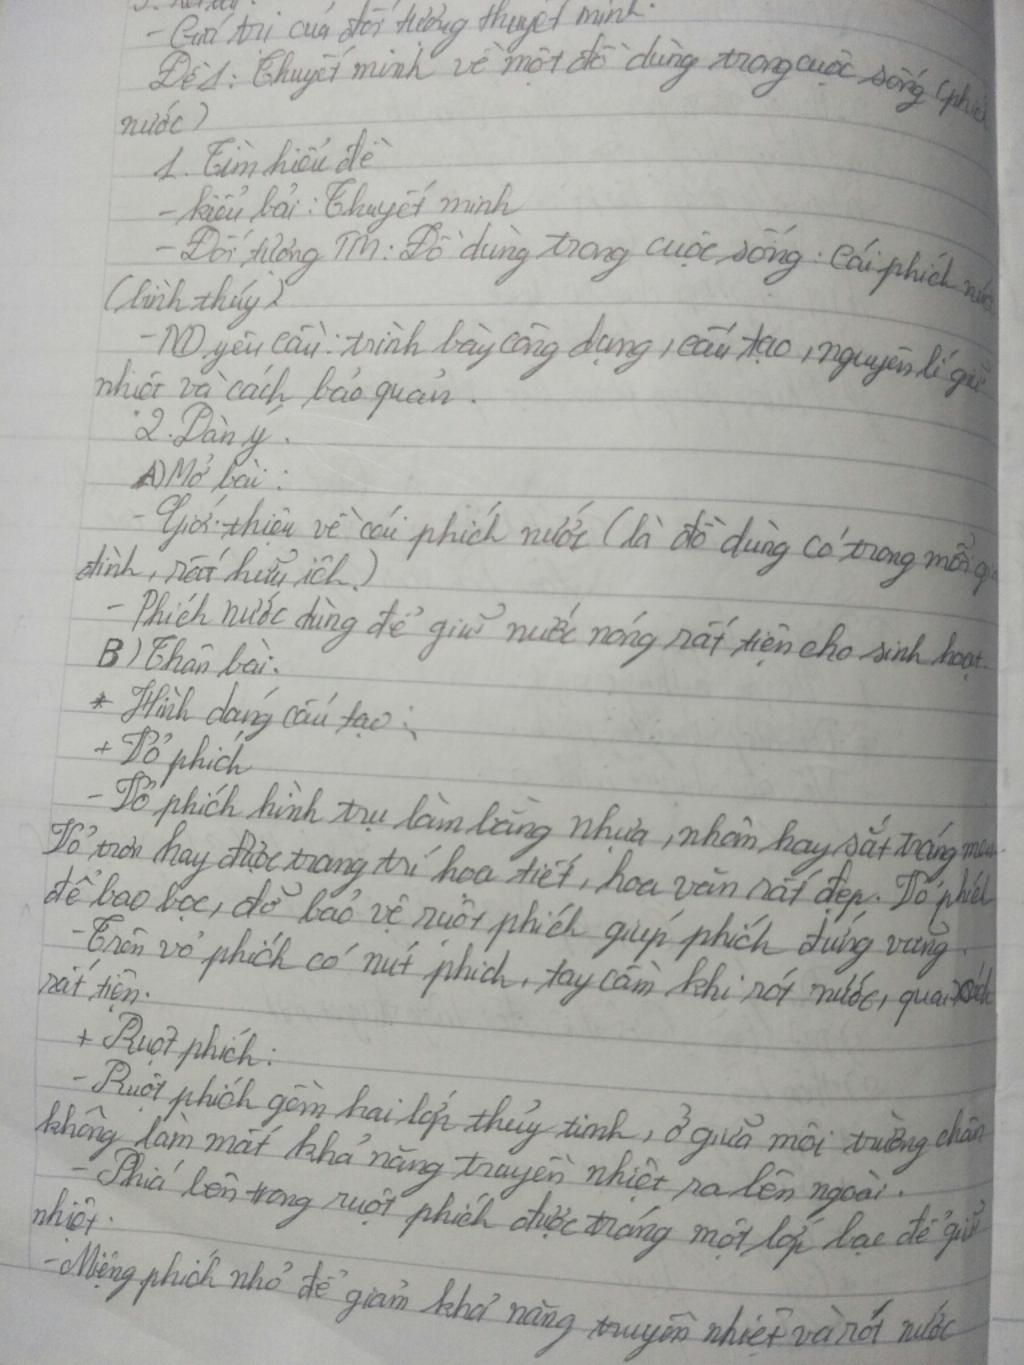 - Giá trị của đối tượng thuyết minh.
Đề 1: Thuyết minh về một đồ dùng trong cuộc sống (phích
nước)
1. Tìm hiểu đề
- kiểu bài: Thuyết minh
- Đối tượng TM: Đồ dùng trong cuộc sống: cái phích nước
(bình thủy)
- ND yêu cầu: trình bày công dụng, cấu tạo, nguyên lí giữ
nhiệt và cách bảo quản.
2. Dàn ý.
A) Mở bài:
- Giới thiệu về cái phích nước (là đồ dùng có trong mỗi gia
đình, rất hữu ích.)
- Phích nước dùng để giữ nước nóng rất tiện cho sinh hoạt.
B) Thân bài.
* Hình dáng cấu tạo:
+ Vỏ phích
- Vỏ phích hình trụ làm bằng nhựa, nhôm hay sắt tráng men.
Vỏ trơn hay được trang trí hoa tiết, hoa văn rất đẹp. Vỏ phích
để bao bọc, đỡ bảo vệ ruột phích giúp phích đứng vững.
- Trên vỏ phích có nút phích, tay cầm khi rót nước, quai xách
rất tiện.
+ Ruột phích:
- Ruột phích gồm hai lớp thủy tinh, ở giữa môi trường chân
không làm mất khả năng truyền nhiệt ra bên ngoài.
- Phiá bên trong ruột phích được tráng một lớp bạc để giữ
nhiệt.
- Miệng phích nhỏ để giảm khả năng truyền nhiệt và rót nước